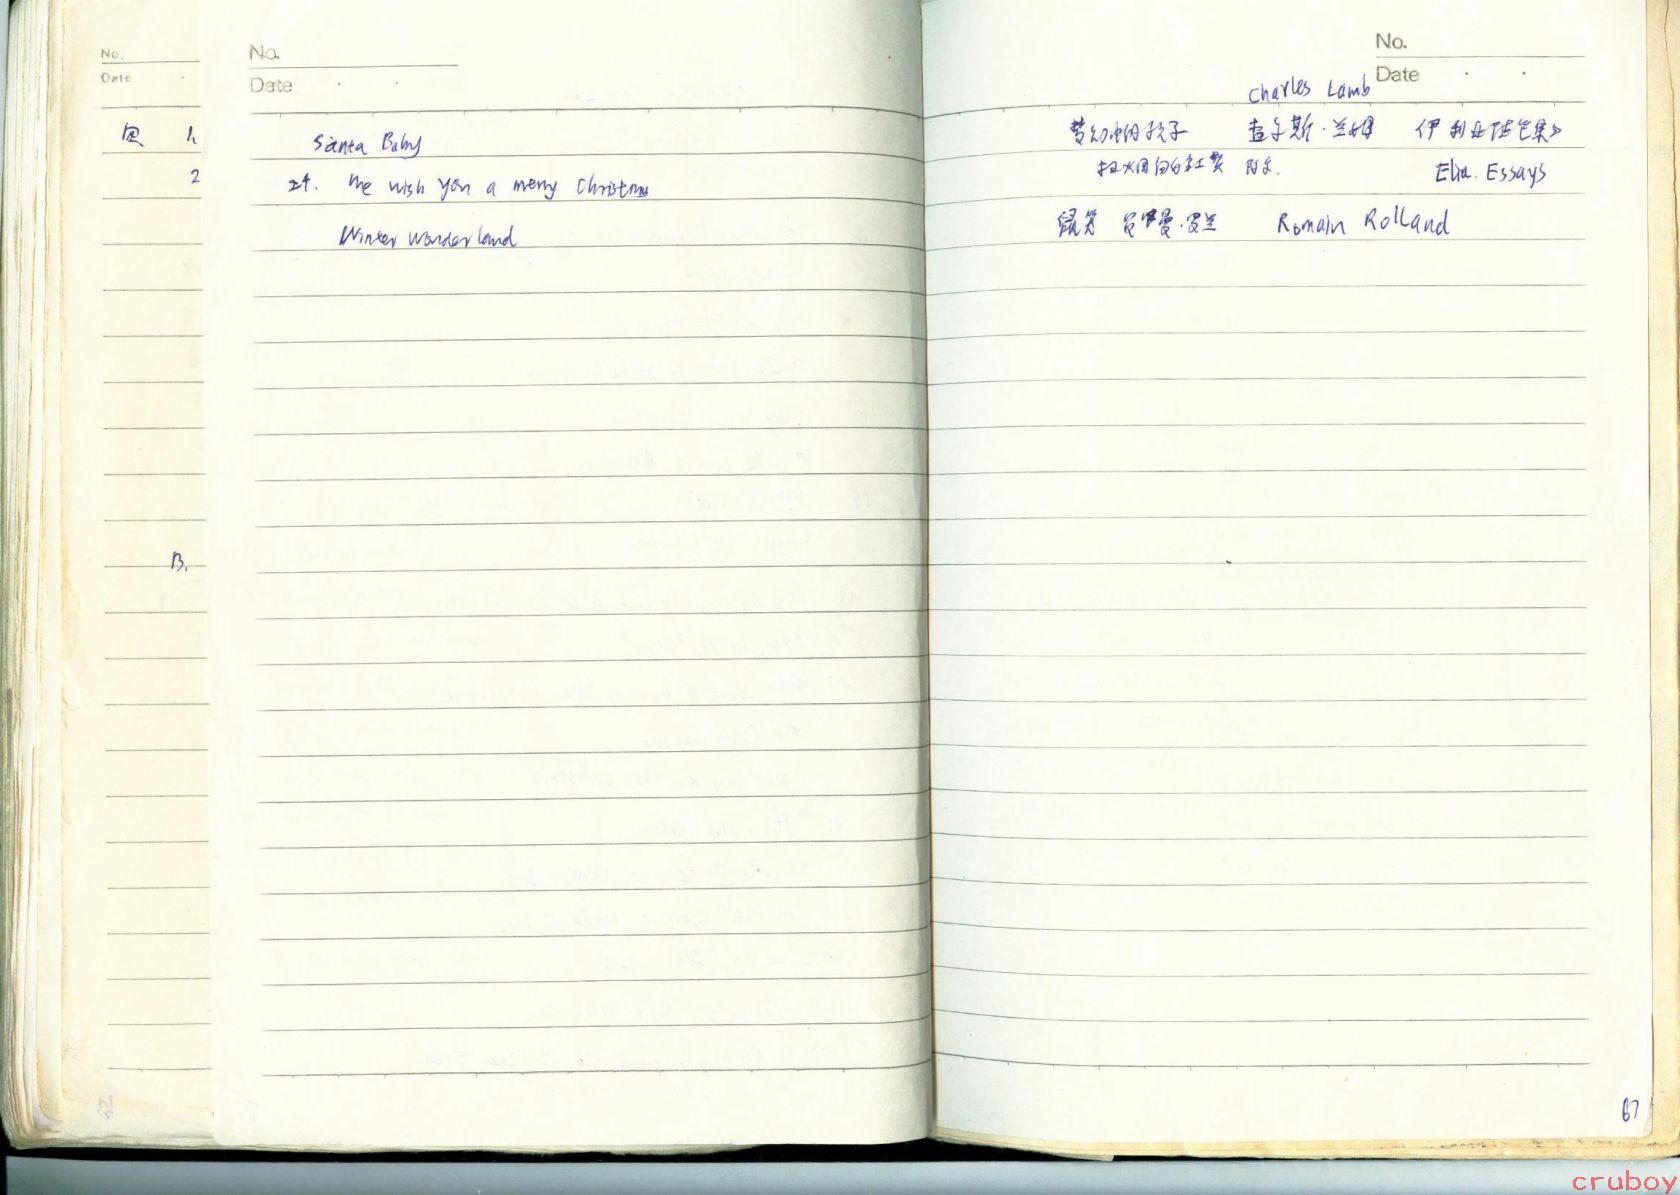 No.
Date
1,
2
B.
No.
Date
Santa Baby
24. We wish you a merry Christmas
Winter Wonderland
No.
Date
Charles Lamb
梦幻中的孩子 查尔斯·兰姆 伊利亚随笔集》
扫烟囱的
Elia. Essays
鼠笑 罗曼·罗兰 Romain Rolland
67
cruboy